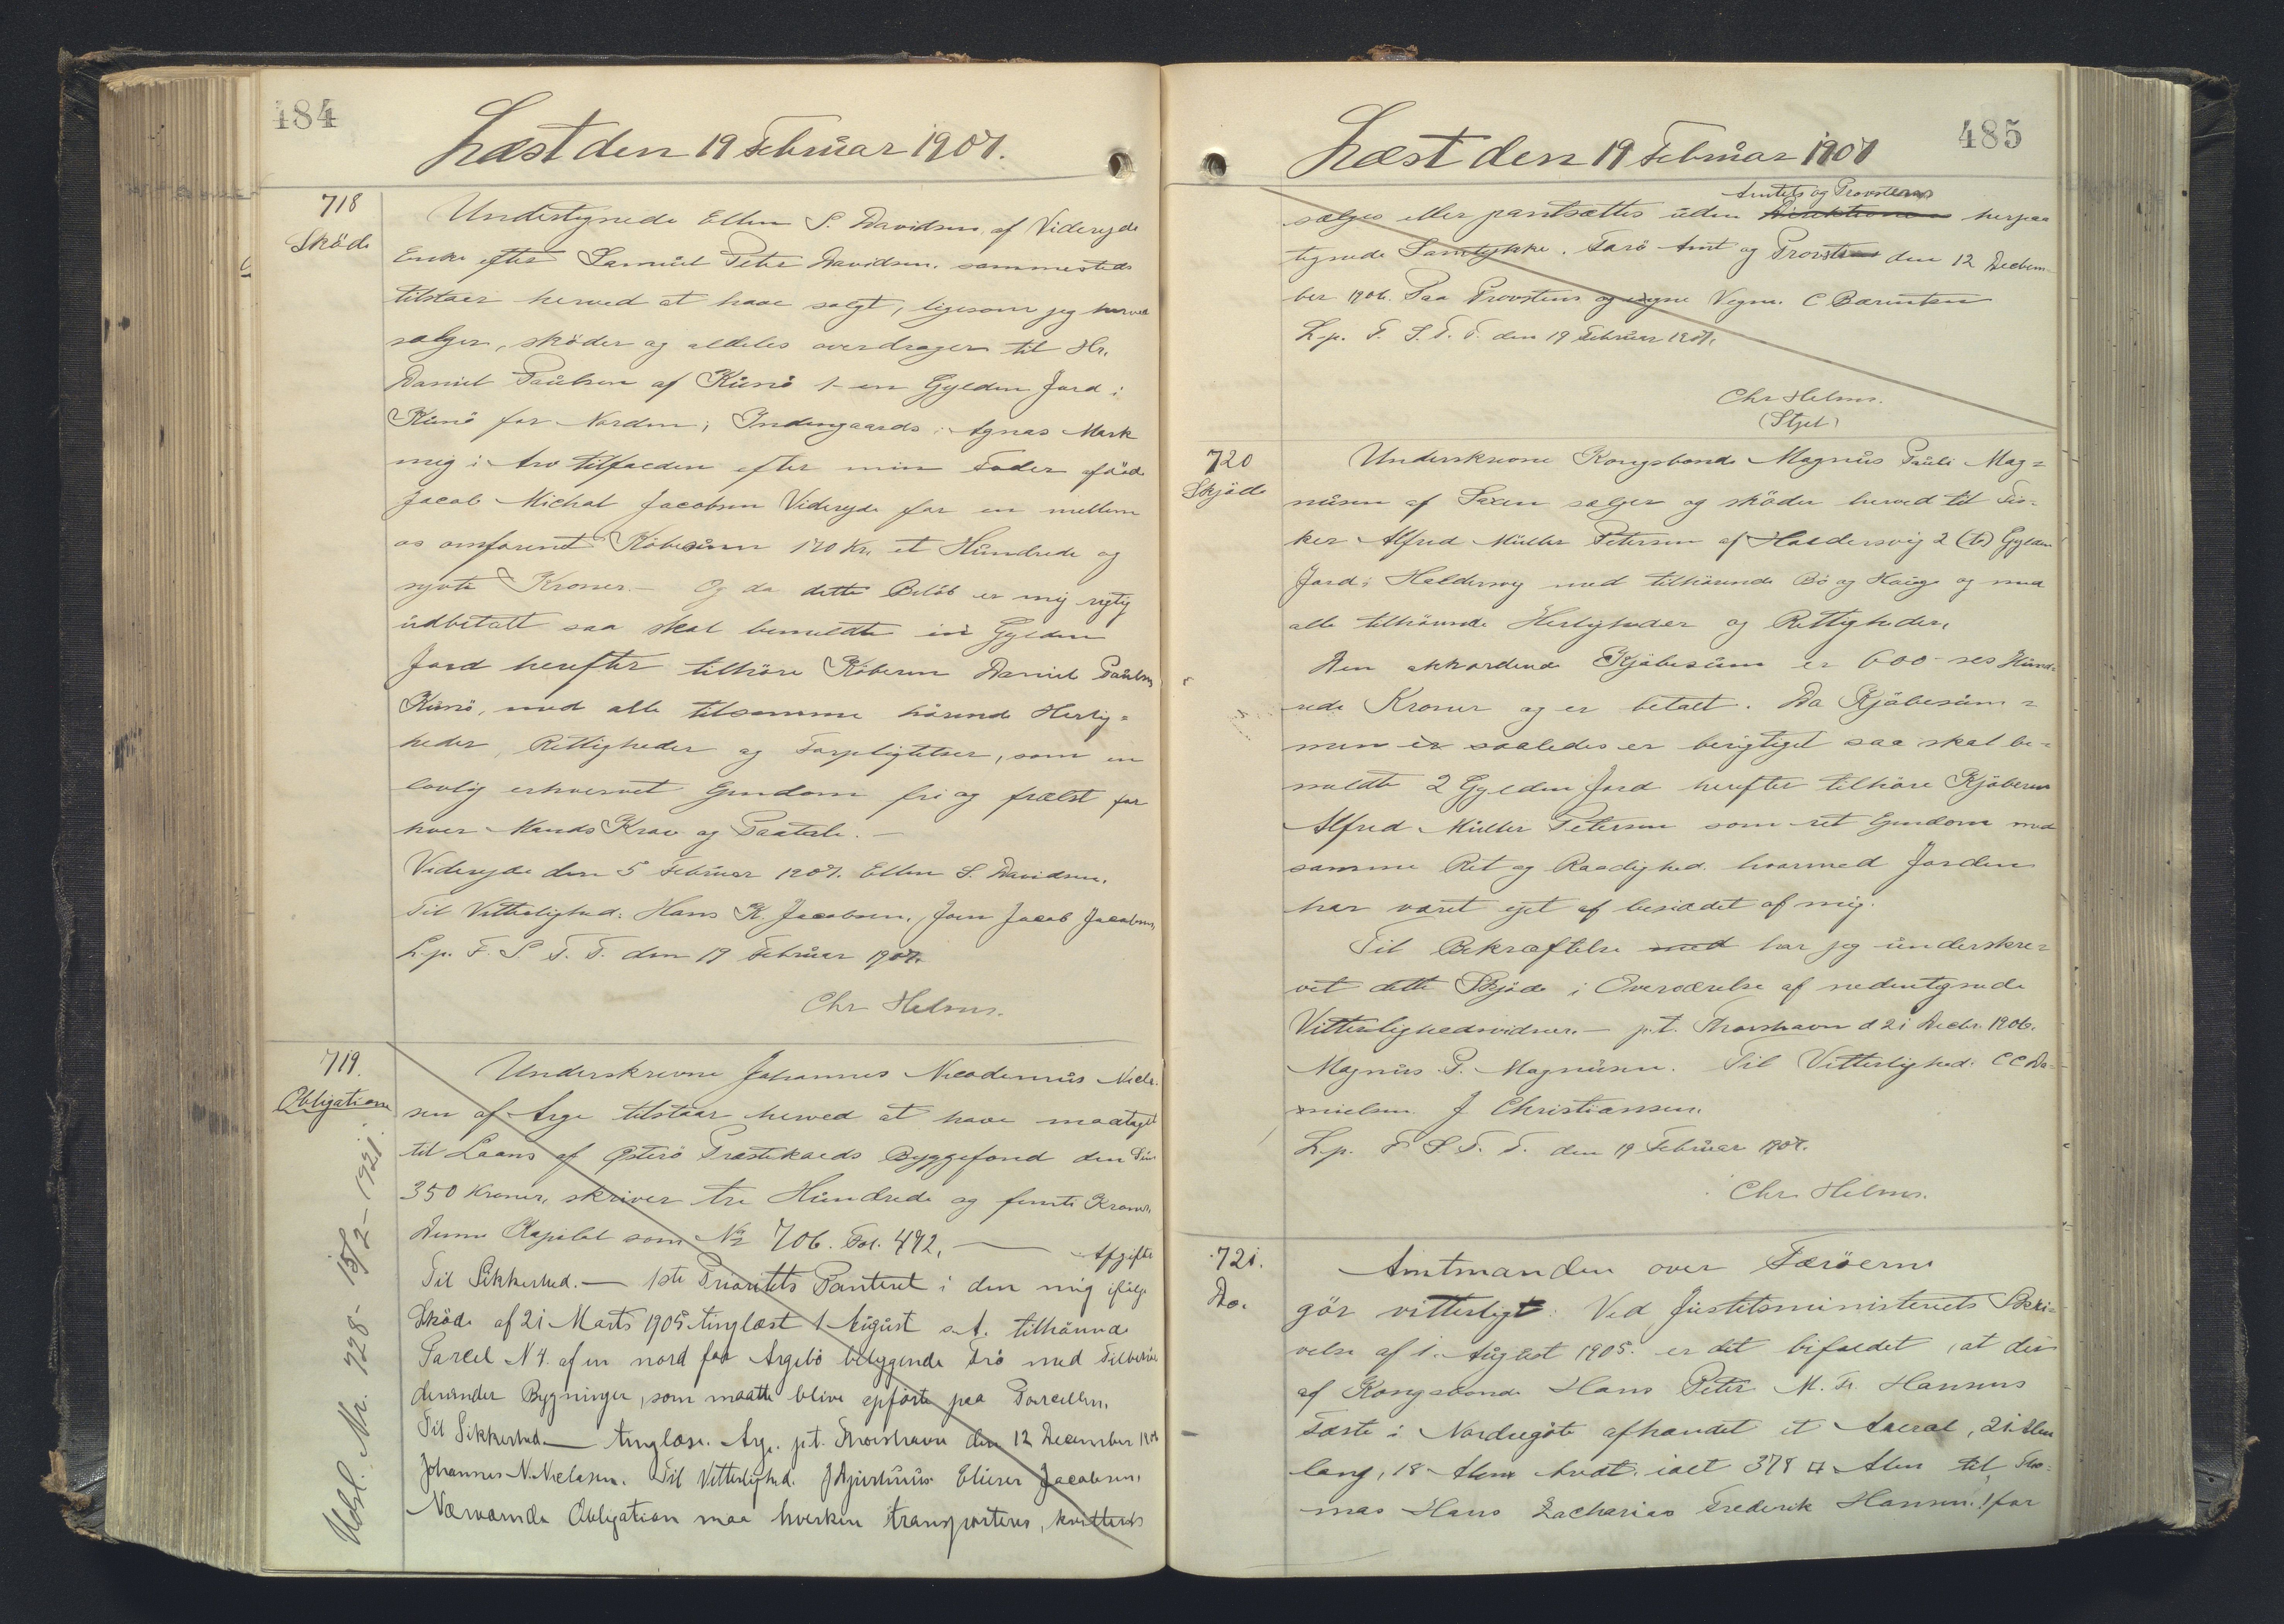 484
Læst den 19 Februar 1907.
718
Sköde
Undertegnede Ellen S. Davidsen, af Videreyde
Enke efter Samuel Peter Davidsen sammesteds
tilstaar herved at have solgt, ligesom jeg herved
sælger, sköder og aldeles overdrager til Hr.
Daniel Paulsen af Kunö 1 - en Gylden Jord i
Kunö for Norden, Indengaards i Agnas Mark
mig i Arv tilfalden efter min Fader afdöde
Jacob Michal Jacobsen Videreyde for en mellem
os omforent Köbesum 170 Kr, et Hundrede og
syvti Kroner. - Og da dette Belöb er mig rigtig
udbetalt saa skal bemeldte en Gylden
Jord herefter tilhöre Köberen Daniel Paulsen
Kunö, med alle tilsamme hörende Herlig=
heder, Rettigheder og Forpligtelser, som en
lovlig erhvervet Ejendom fri og frælst for
hver Mands Krav og Paatale. -
Videreyde den 5 Februar 1907. Ellen S. Davidsen.
Til Vitterlighed: Hans K. Jacobsen, Joen Jacob Jacobsen,
L. p. F. S. T. T. den 19 Februar 1907.
Chr Helms.
719.
Obligation
Underskrevne Johannes Nicodemus Niels-
sen af Arge tilstaar herved at have modtaget
til Laans af Österö Præstekalds Byggefond den Sum
350 Kroner, skriver tre Hundrede og femti Kroner
Denne Kapital som No 706. Fol. 492, — Afgifter
Til Sikkerhed. — 1ste Prioritets Panteret i den mig ifölge
Sköde af 21 Marts 1905 tinglæst 1 August s. A. tilhörende
Parcel N 4. af en nord for Argebö beliggende Trö med Tilbehör
derunder Bygninger, som maatte blive opförte paa Parcellen.
Til Sikkerhed — tinglæse. Arge. p.t. Thorshavn den 12 December 1906
Johannes N. Nielsen. Til Vitterlighed. Elieser Jacobsen.
Nærværende Obligation maa hverken transporteres, kvitteres
Udsl. Nr. 728 - 15/2 - 1921.
485
Læst den 19 Februar 1907
Amtets og Provstens
sælges eller pantsættes uden Direktionens herpaa
tegnede Samtykke. Farö Amt og Provsti den 12 Decbem-
ber 1906. Paa Provstens og egne Vegne. C Bærentsen
L. p. F. S. T. T. den 19 Februar 1907.
Chr Helms.
(Stpel)
720
Skjöde
Underskrevne Kongsbonde Magnus Pauli Mag=
nusen af Saxen sælger og sköder herved til Fis-
ker Alfred Müller Petersen af Haldersvig 2 (to) Gylden
Jord i Haldersvig med tilhörende Bö og Hauge og med
alle tilhörende Herligheder og Rettigheder.
Den akkorderede Kjöbesum er 600 - ses Hund-
rede Kroner og er betalt. Da Kjöbesum=
men er saaledes er berigtiget saa skal be-
meldte 2 Gylden Jord herefter tilhöre Kjöberen
Alfred Müller Petersen som ret Ejendom med
samme Ret og Raadighed, hvormed Jorden
har været ejet af besiddet af mig.
Til Bekræftelse med har jeg underskre=
vet dette Skjöde i Overværelse af nedentegnede
Vitterlighedsvidner. - p.t. Thorshavn d 21 Decbr. 1906.
Magnus P. Magnusen. Til Vitterlighed: C C Da-
nielsen. J Christiansen.
L. p. F S T. T. den 19 Februar 1907.
Chr. Helms.
721.
Do.
Amtmanden over Færöerne
gör vitterligt: Ved Justitsministeriets Skri=
velse af 1. August 1905. er det bifaldet, at der
af Kongsbonde Hans Peter M. Fr. Hansens
Fæste i Nordregöte afhændet et Areal, 21 Alen
lang, 18 Alen bredt, ialt 378 □ Alen til Tho-
mas Hans Zacharias Frederik Hansen, for